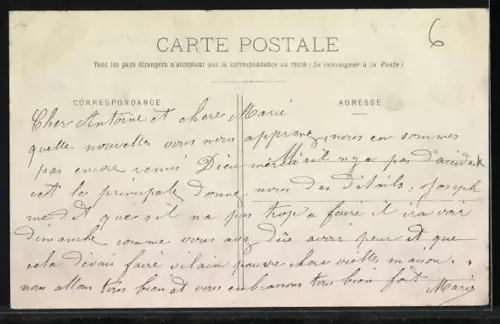 6
CARTE POSTALE
Tous les pays étrangers n'acceptent pas la correspondance au recto (Se renseigner à la Poste)
CORRESPONDANCE
ADRESSE
Cher Antoine et chere Marie
quelle nouvelles vous nous apprenez nous en sommes
pas encore remis Dieu merci il n'y a pas d'accident
cet le principale donne nous des détails. Joseph
me dit que s'il na pas trop a faire il ira voir
dimanche comme vous avez dûe avoir peur et que
cela devait faire vilain pauvre chere vieille maison.
nous allons très bien et vous embrassons tous bien fort Marie